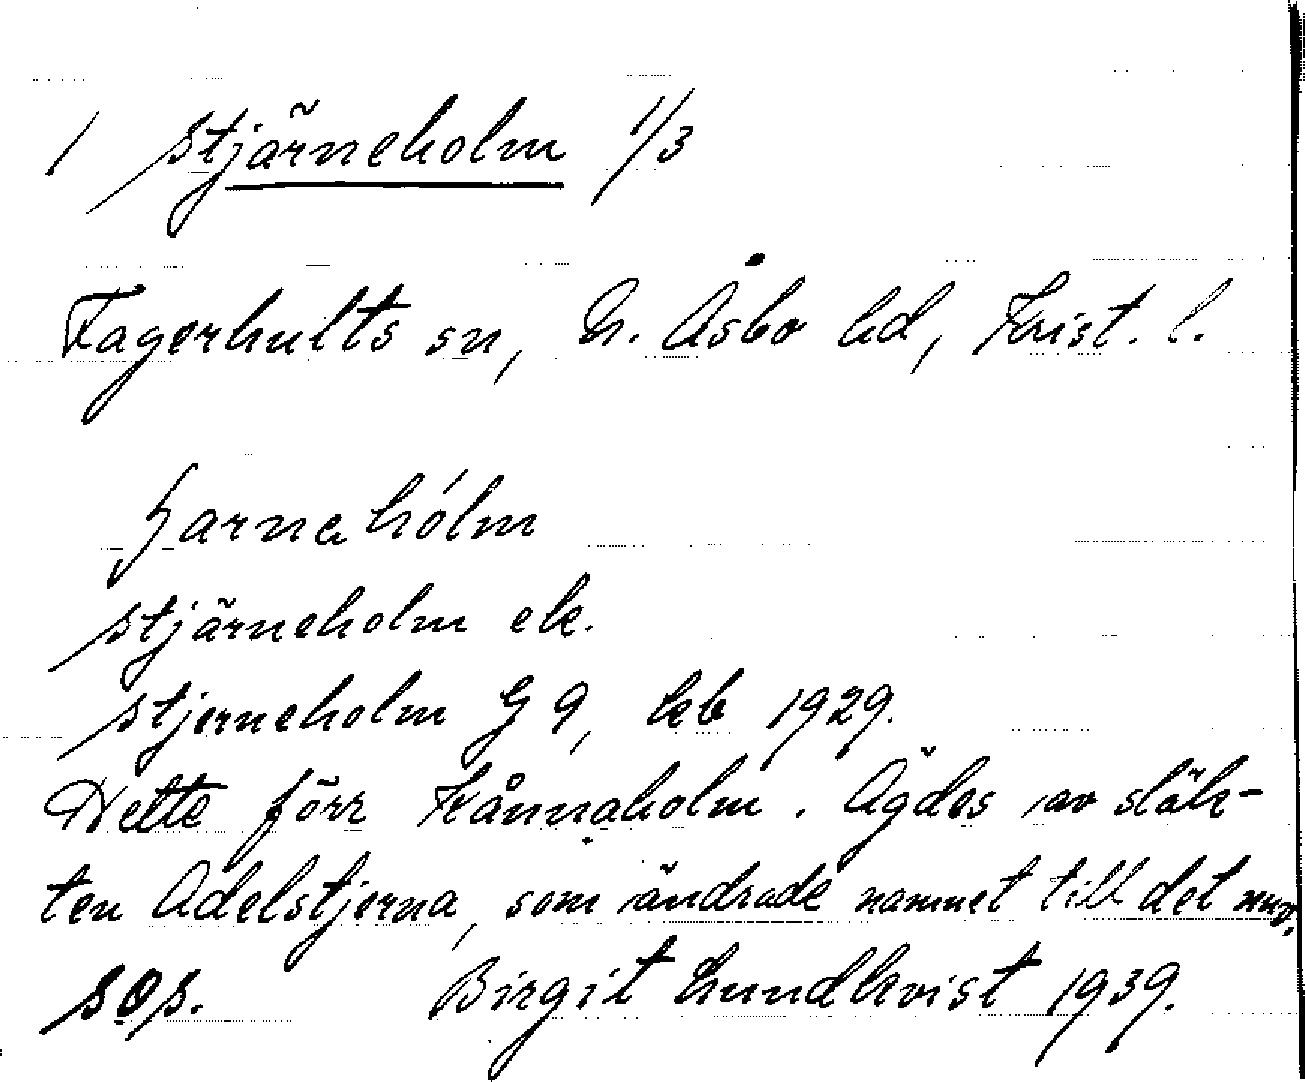 1 Stjärneholm 1/3
Fagerhults sn, N. Åsbo hd, Krist. l.
stjärneholm ek.
stjerneholm G 9, kb 1929.
Hette förr Kånnaholm. Ägdes av släk-
ten Adelstjerna, som ändrade namnet till det nuv.
Birgit Lundkvist 1939.